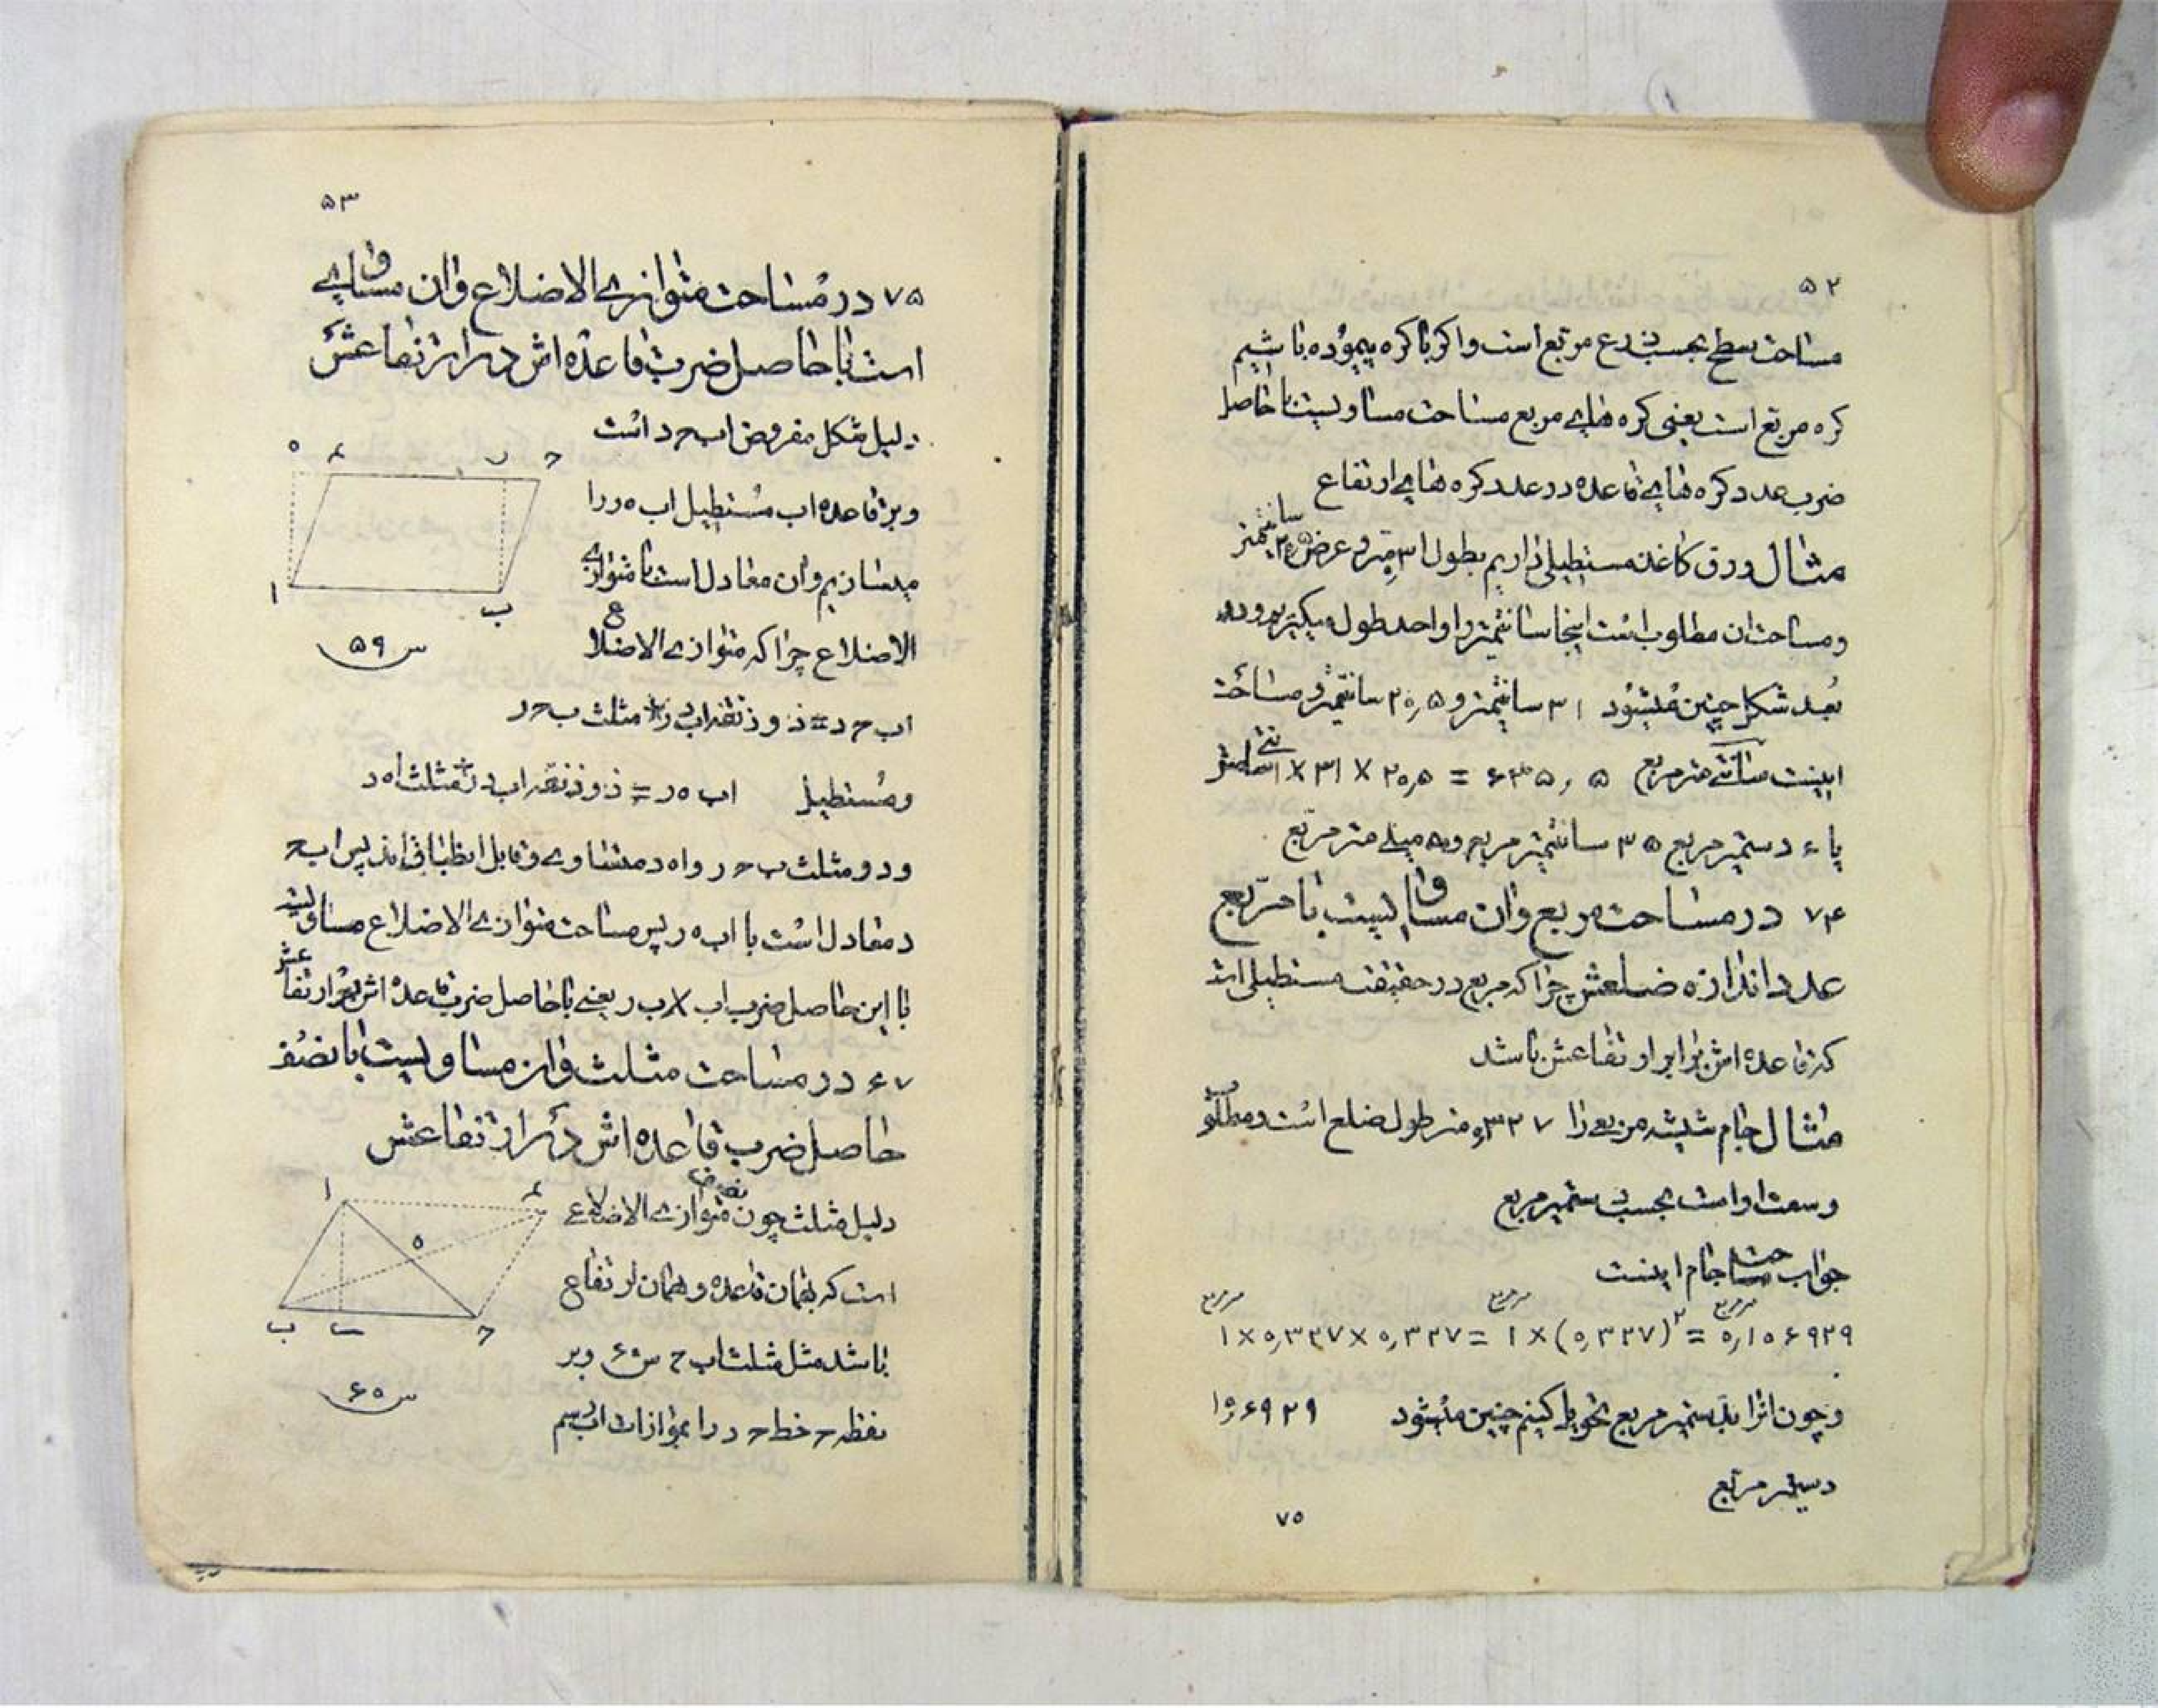 ۵۲
مساحت سطح بحسب ذرع مربع است و اکر با کره پیموده باشیم
کره مربع است یعنی کره های مربع مساحت مساویست با حاصل
ضرب عدد کره های قاعده در عدد کره های ارتفاع
مثال ورق کاغذ مستطیلی داریم بطول ۳۱ر۰ متر و عرض ۲۰٫۵ سانتیمتر
و مساحت ان مطلوب است اینجا سانتیمتر را واحد طول میکیریم و دو
بعد شکل چنین میشود ۳۱ سانتیمتر و ۲۰٫۵ سانتیمتر و مساحت
اینست سانتی متر مربع ۶۳۵٫۵ = ۲۰٫۵ × ۳۱ × ۱
یا ۶ دسیمتر مربع ۳۵ سانتیمتر مربع و ۵۰ میلی متر مربع
۷۴ در مساحت مربع وان مساویست با مربع
عدد اندازه ضلعش چرا که مربع در حقیقت مستطیلی است
که قاعده اش برابر ارتفاعش باشد
مثال جام شیشه مربعی را ۰٫۳۲۷ متر طول ضلع است و مطلوب
وسعت او است بحسب دسیمتر مربع
جواب مساحت جام اینست
۱×۰٫۳۲۷×۰٫۳۲۷= ۱×(۰٫۳۲۷)۲= ۰٫۱۰۶۹۲۹
و چون انرا بدسیمتر مربع تحویل کنیم چنین میشود ۱۰٫۶۹۲۹
دسیمتر مربع
۷۵
۵۳
۷۵ در مساحت متوازی الاضلاع وان مساوی
است با حاصل ضرب قاعده اش در ارتفاعش
دلیل شکل مفروض اب ح د است
و بر قاعده اب مستطیل اب ه ر را
میسازیم وان معادل است با متوازی
الاضلاع چرا که متوازی الاضلاع
اب ح د = ذوذنقه اب د ر + مثلث ب ح ر
و مستطیل اب ه ر = ذوذنقه اب د ر + مثلث اه د
و دو مثلث ب ح ر و اه د متساوی و قابل انطباق اند پس اب ح
د معادل است با اب ه ر پس مساحت متوازی الاضلاع مساویست
با این حاصل ضرب اب × ب ر یعنی با حاصل ضرب قاعده اش در ارتفاعش
۷۶ در مساحت مثلث وان مساویست با نصف
حاصل ضرب قاعده اش در ارتفاعش
دلیل مثلث چون نصف متوازی الاضلاعی
است که بهمان قاعده و همان ارتفاع
باشد مثل مثلث اب ح س۶۰ و بر
نقطه ح خط ح د را بموازات اب رسم
ه د ر ح
ا ب
س ۵۹
ا د
ه
ب ح
س ۶۰